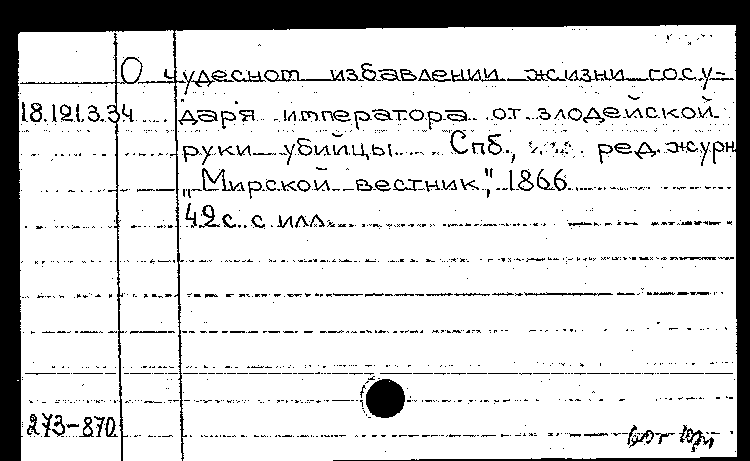 О чудесном избавлении жизни госу-
18.121.3.34 даря императора от злодейской
руки убийцы. Спб., ред. журн
„Мирской вестник", 1866
42 с. с илл.
273-870